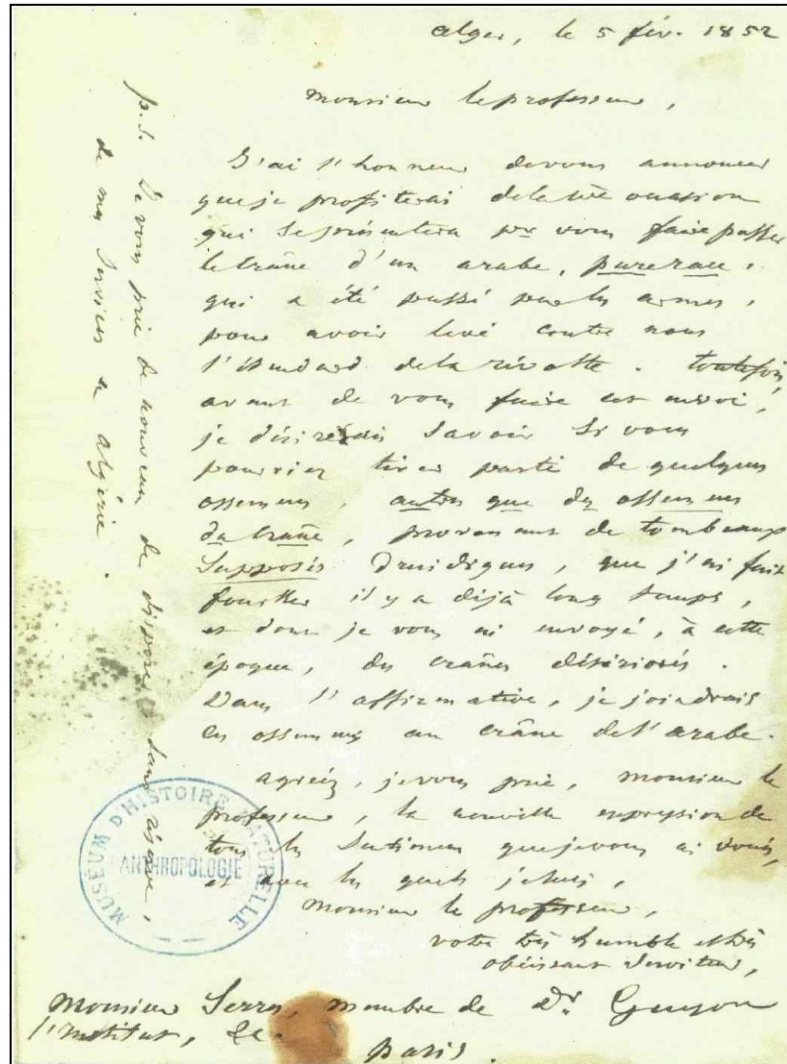 alger, le 5 fév. 1852
monsieur le professeur,
J'ai l'honneur de vous annoncer
que je profiterai de la 1ère occasion
qui se présentera pr vous faire passer
le crâne d'un arabe, pure race,
qui a été passé par les armes,
pour avoir levé contre nous
l'étendard de la révolte. toutefois,
avant de vous faire cet envoi,
je désirerais savoir si vous
pourriez tirer parti de quelques
ossemens, autres que des ossemens
du crâne, provenant de tombeaux
supposés Druidiques, que j'ai fait
fouiller il y a déjà long temps,
et dont je vous ai envoyé, à cette
époque, des crânes détériorés.
Dans l'affirmative, je joindrais
ces ossemens au crâne de l'arabe.
agréez, je vous prie, monsieur le
professeur, la nouvelle expression de
tous les sentimens que je vous ai voués,
et avec les quels je suis,
monsieur le professeur,
votre très humble et très
obéissant serviteur,
Dr Guyon
monsieur Serres, membre de
l'institut, &c.
paris.
p.s. Je vous prie de nouveau de disposer, sans réserve,
de mes services en algérie.
MUSÉUM D'HISTOIRE NATURELLE
ANTHROPOLOGIE